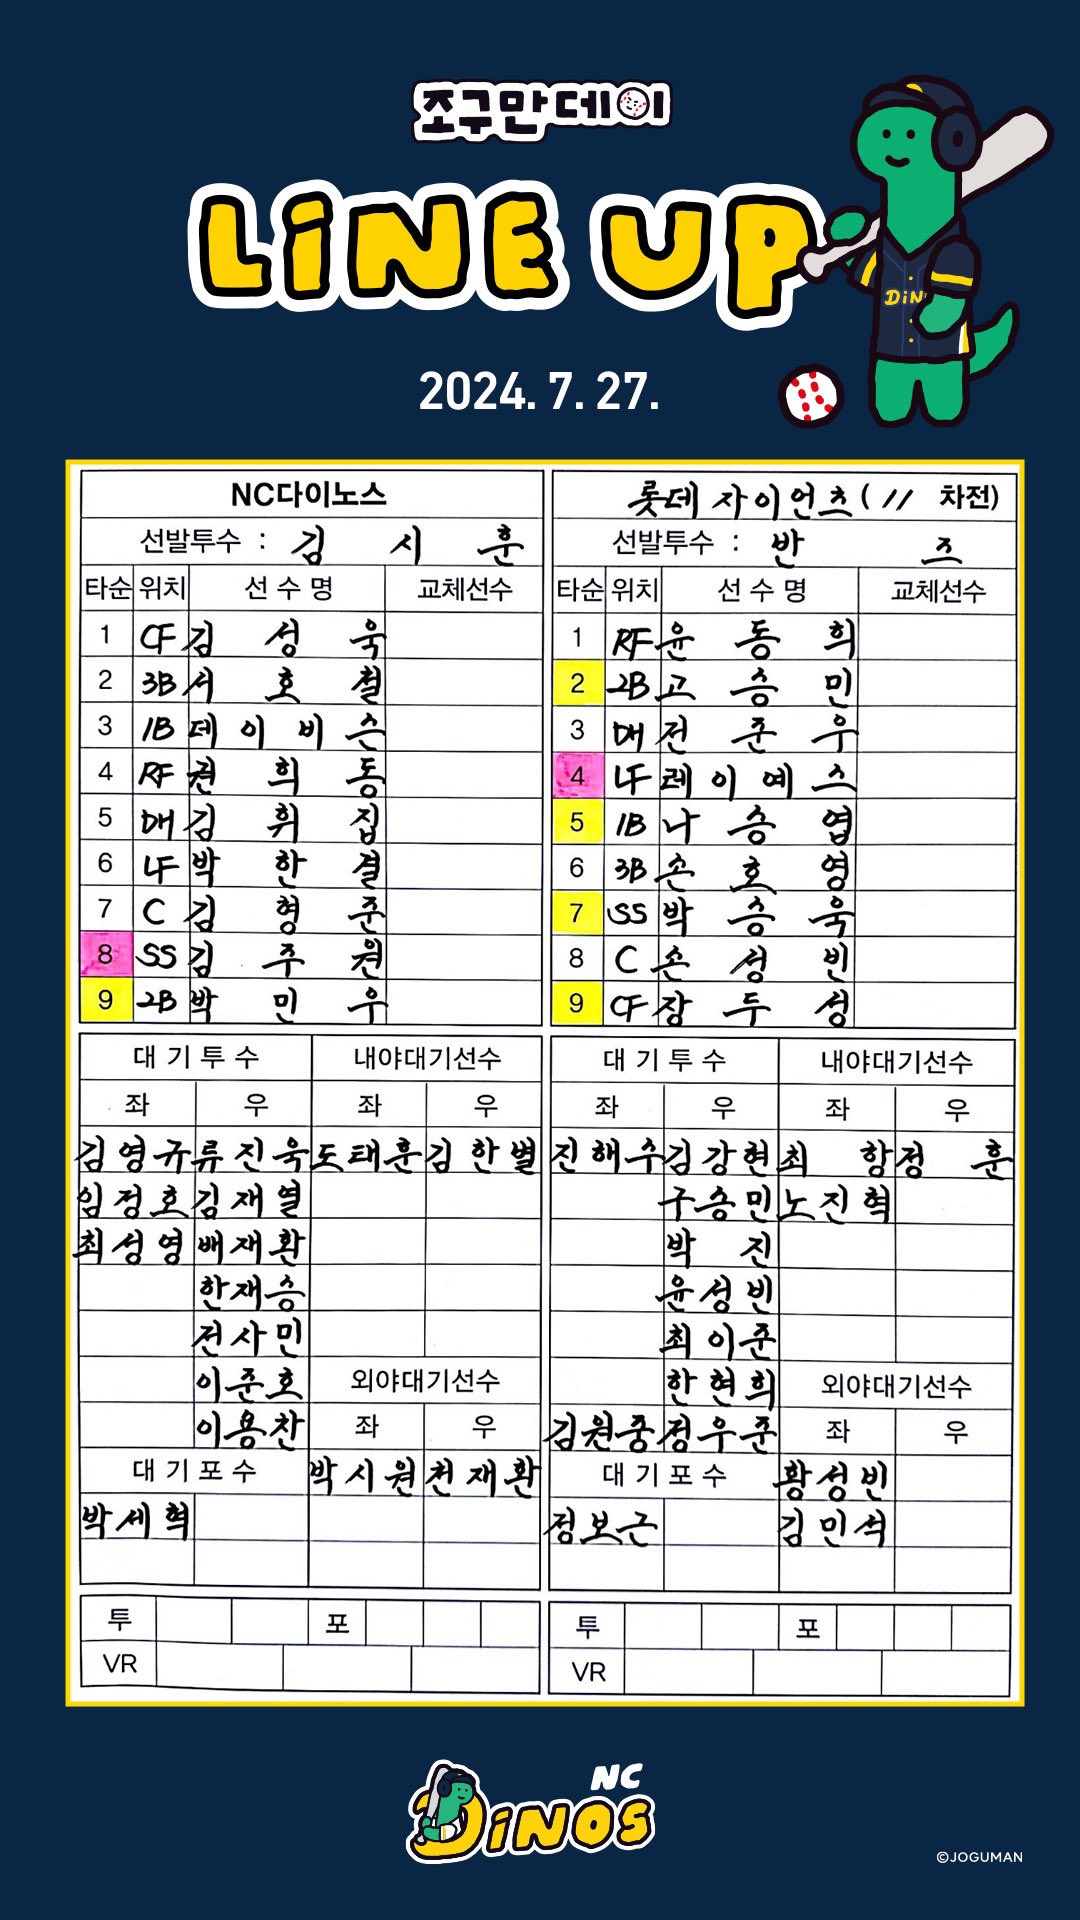 조구만데이
LiNE UP
2024. 7. 27.
DiN
NC다이노스
선발투수 : 김시훈
타순 위치 선수명 교체선수
1 CF 김성욱
2 3B 서호철
3 1B 데이비슨
4 RF 권희동
5 DH 김휘집
6 LF 박한결
7 C 김형준
8 SS 김주원
9 2B 박민우
대기투수 내야대기선수
좌 우 좌 우
김영규 류진욱 도태훈 김한별
임정호 김재열
최성영 배재환
한재승
전사민
이준호 외야대기선수
이용찬 좌 우
대기포수 박시원 천재환
박세혁
투 포
VR
롯데 자이언츠 ( 11 차전)
선발투수 : 반즈
타순 위치 선수명 교체선수
1 RF 윤동희
2 2B 고승민
3 DH 전준우
4 LF 레이예스
5 1B 나승엽
6 3B 손호영
7 SS 박승욱
8 C 손성빈
9 CF 장두성
대기투수 내야대기선수
좌 우 좌 우
진해수 김강현 최항 정훈
구승민 노진혁
박진
윤성빈
최이준
한현희 외야대기선수
김원중 정우준 좌 우
대기포수 황성빈
정보근 김민석
투 포
VR
NC
DiNOS
©JOGUMAN